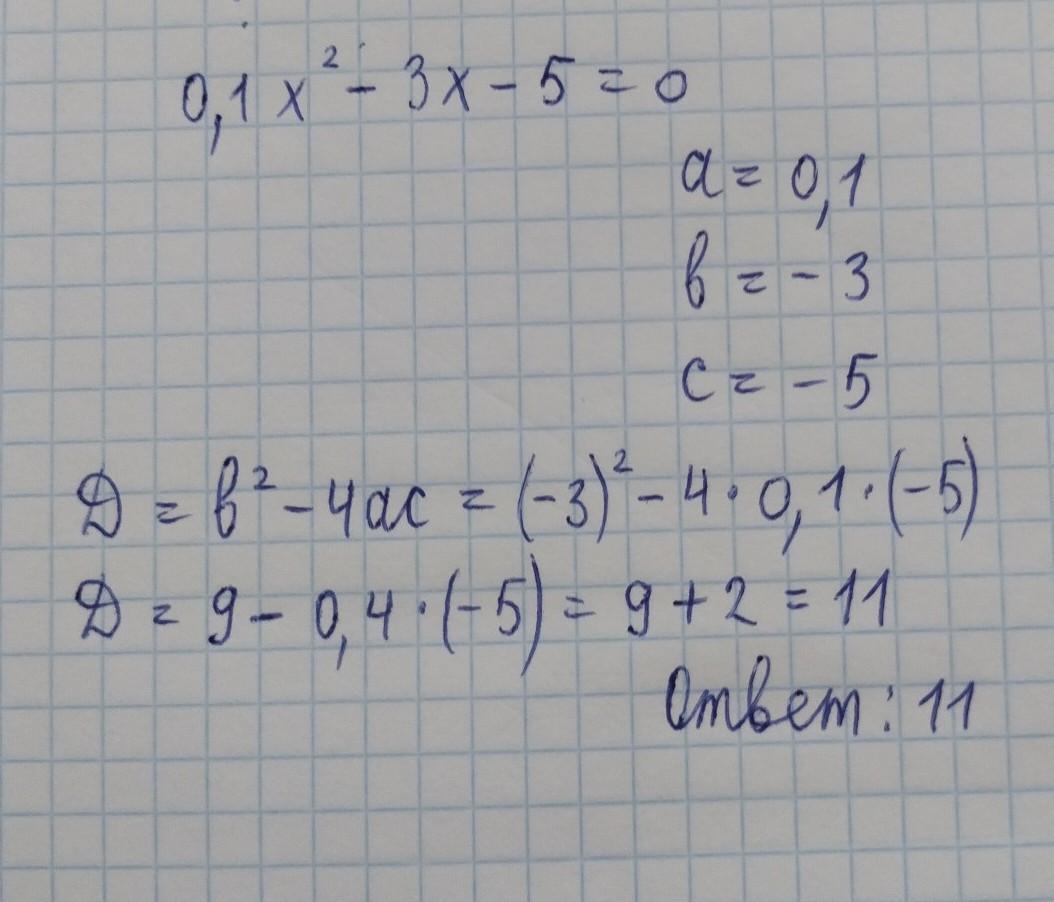 0,1x² - 3x - 5 = 0
a = 0,1
в = - 3
c = - 5
Д = в² - 4ac = (-3)² - 4 · 0,1 · (-5)
Д = 9 - 0,4 · (-5) = 9 + 2 = 11
Ответ: 11